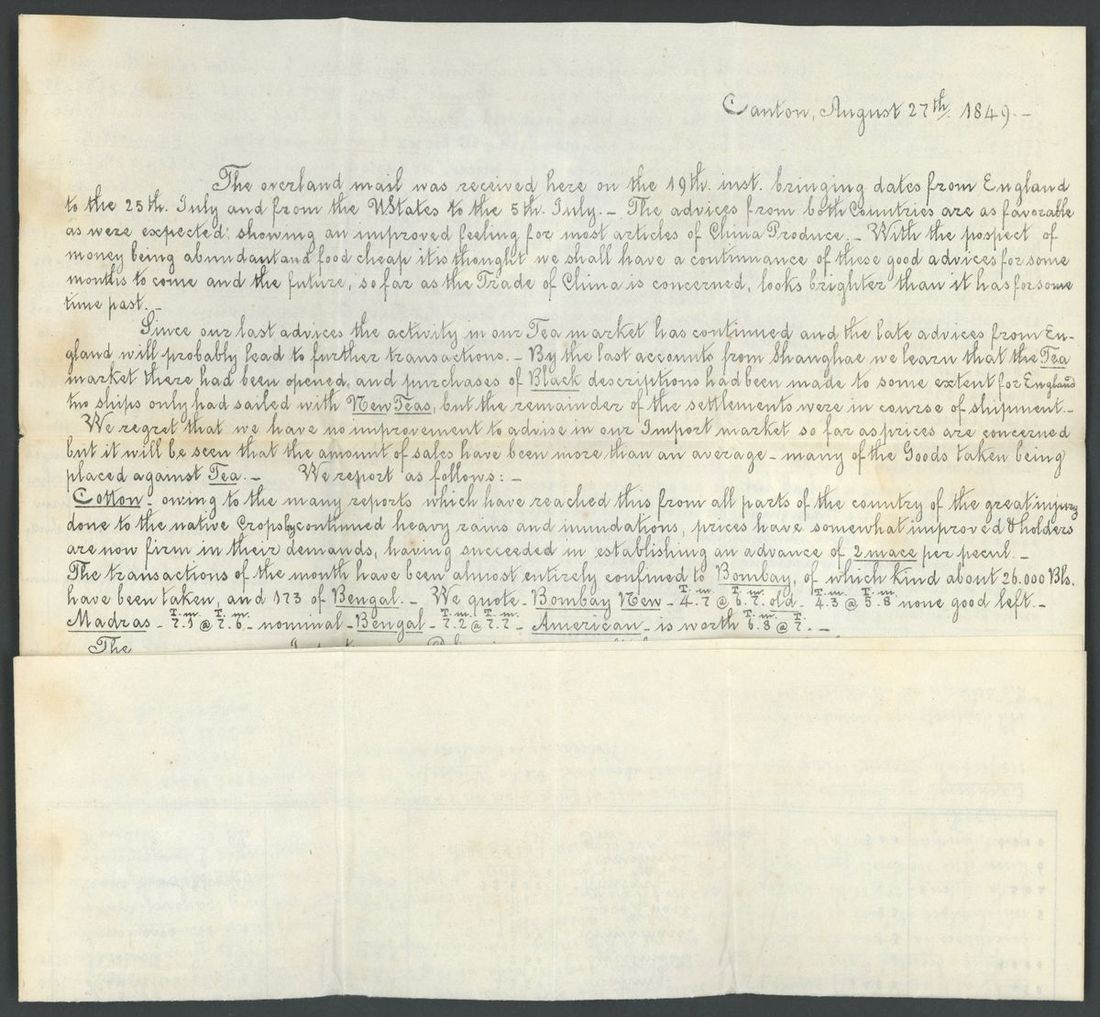 Canton, August 27th. 1849. –
The overland mail was received here on the 19th. inst. bringing dates from England
to the 25th. July and from the UStates to the 5th. July. – The advices from both Countries are as favorable
as were expected; showing an improved feeling for most articles of China Produce. – With the pospect of
money being abundant and food cheap it is thought we shall have a continuance of these good advices for some
months to come and the future, so far as the Trade of China is concerned, looks brighter than it has for some
time past. –
Since our last advices the activity in our Tea market has continued and the late advices from En-
gland will probably lead to further transactions. – By the last accounts from Shanghae we learn that the Tea
market there had been opened, and purchases of Black descriptions had been made to some extent for England
two ships only had sailed with New Teas, but the remainder of the settlements were in course of shipment. –
We regret that we have no improvement to advise in our Import market so far as prices are concerned
but it will be seen that the amount of sales have been more than an average – many of the Goods taken being
placed against Tea. – We report as follows: –
Cotton – owing to the many reports which have reached this from all parts of the country of the great injury
done to the native Crops by continued heavy rains and inundations, prices have somewhat improved & holders
are now firm in their demands, having succeeded in establishing an advance of 2 mace per pecul. –
The transactions of the month have been almost entirely confined to Bombay, of which kind about 26.000 Bls.
have been taken, and 173 of Bengal. – We quote – Bombay New – T. m. 4.7 @ T. m. 6.7. old – T. m. 4.3 @ T. m. 5.8 none good left. –
Madras – T. m. 7.1 @ T. m. 7.6 – nominal – Bengal – T. m. 7.2 @ T. m. 7.7 – American – is worth T. m. 6.8 @ T. 7. –
The